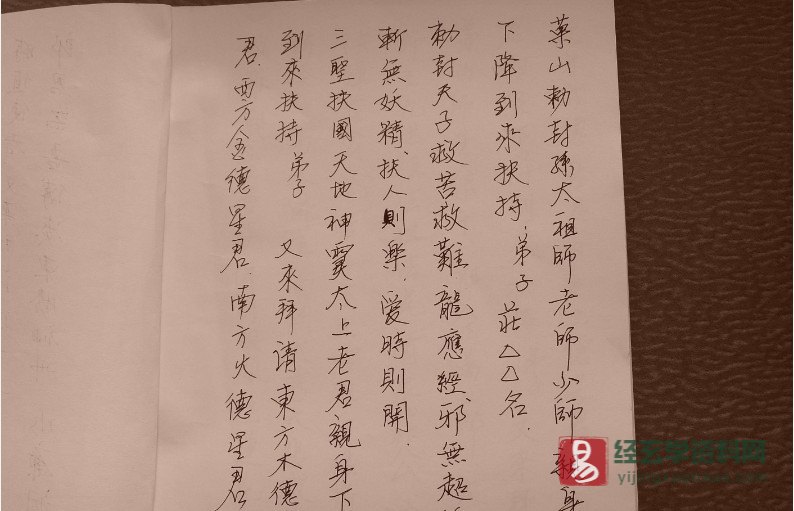 藥山勅封孫太祖師老師少師親身
下降到來扶持弟子莊△△名.
勅封天子救苦救難龍應經邪無超
斬無妖精扶人則樂.愛時則開.
三聖扶國天地神靈太上老君親身下
到來扶持弟子 又來拜請東方木德
君.西方金德星君.南方火德星君
易
yijing